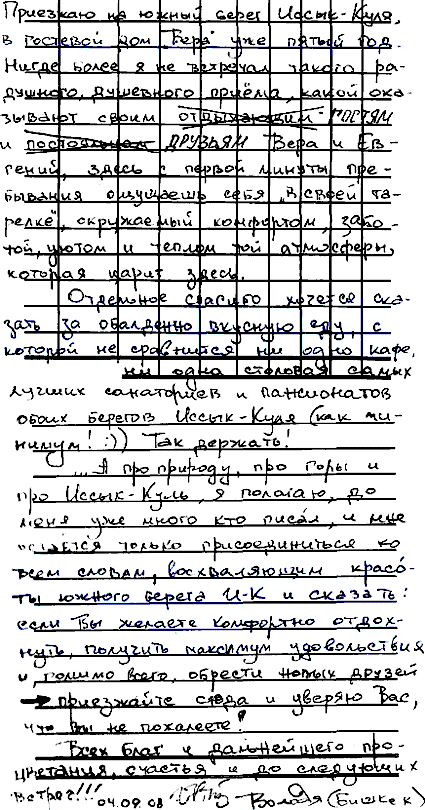 Приезжаю на южный берег Иссык-Куля,
в гостевой дом "Вера" уже пятый год.
Нигде более я не встречал такого ра-
душного, душевного приёма, какой ока-
зывают своим отдыхающим ГОСТЯМ
и постояльцам ДРУЗЬЯМ Вера и Ев-
гений, здесь с первой минуты пре-
бывания ощущаешь себя "в своей та-
релке", окружаемый комфортом, забо-
той, уютом и теплом той атмосферы,
которая царит здесь.
Отдельное спасибо хочется ска-
зать за обалденно вкусную еду, с
которой не сравнится ни одно кафе,
ни одна столовая самых
лучших санаториев и пансионатов
обоих берегов Иссык-Куля (как ми-
нимум! :)) Так держать!
...А про природу, про горы и
про Иссык-Куль, я полагаю, до
меня уже много кто писал, и мне
остаётся только присоединиться ко
всем словам, восхваляющим красо-
ты южного берега И-К и сказать:
если Вы желаете комфортно отдох-
нуть, получить максимум удовольствия
и, помимо всего, обрести новых друзей
→ приезжайте сюда и уверяю Вас,
что вы не пожалеете!
Всех благ и дальнейшего про-
цветания, счастья и до следующих
встреч!!! 04.09.08 Володя (Бишкек)